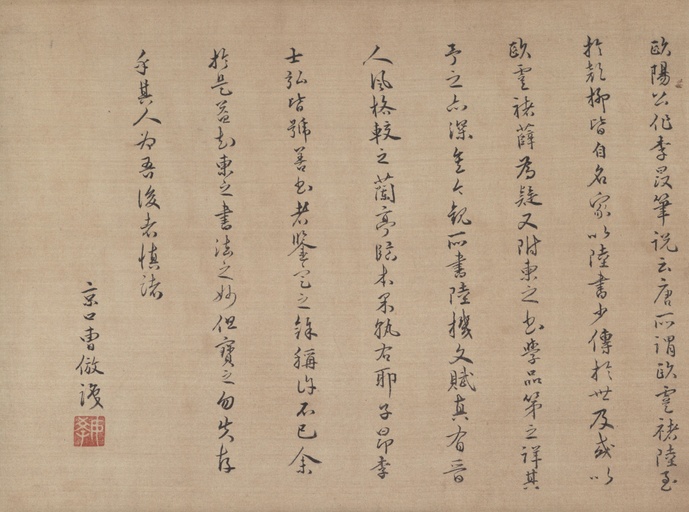 歐陽公作李晸筆說云唐所謂歐虞褚陸至
於顔柳皆自名家以陸書少傳於世及或以
歐虞褚薛為疑又附東之書學品第之詳其
予之亦深矣今觀所書陸機文賦真有晉
人風格較之蘭亭臨本果孰右耶子昂李
士弘皆號善書者鑒定之餘稱許不已余
於是益知東之書法之妙但寶之勿失存
乎其人為吾後者慎諸
京口曹倣識